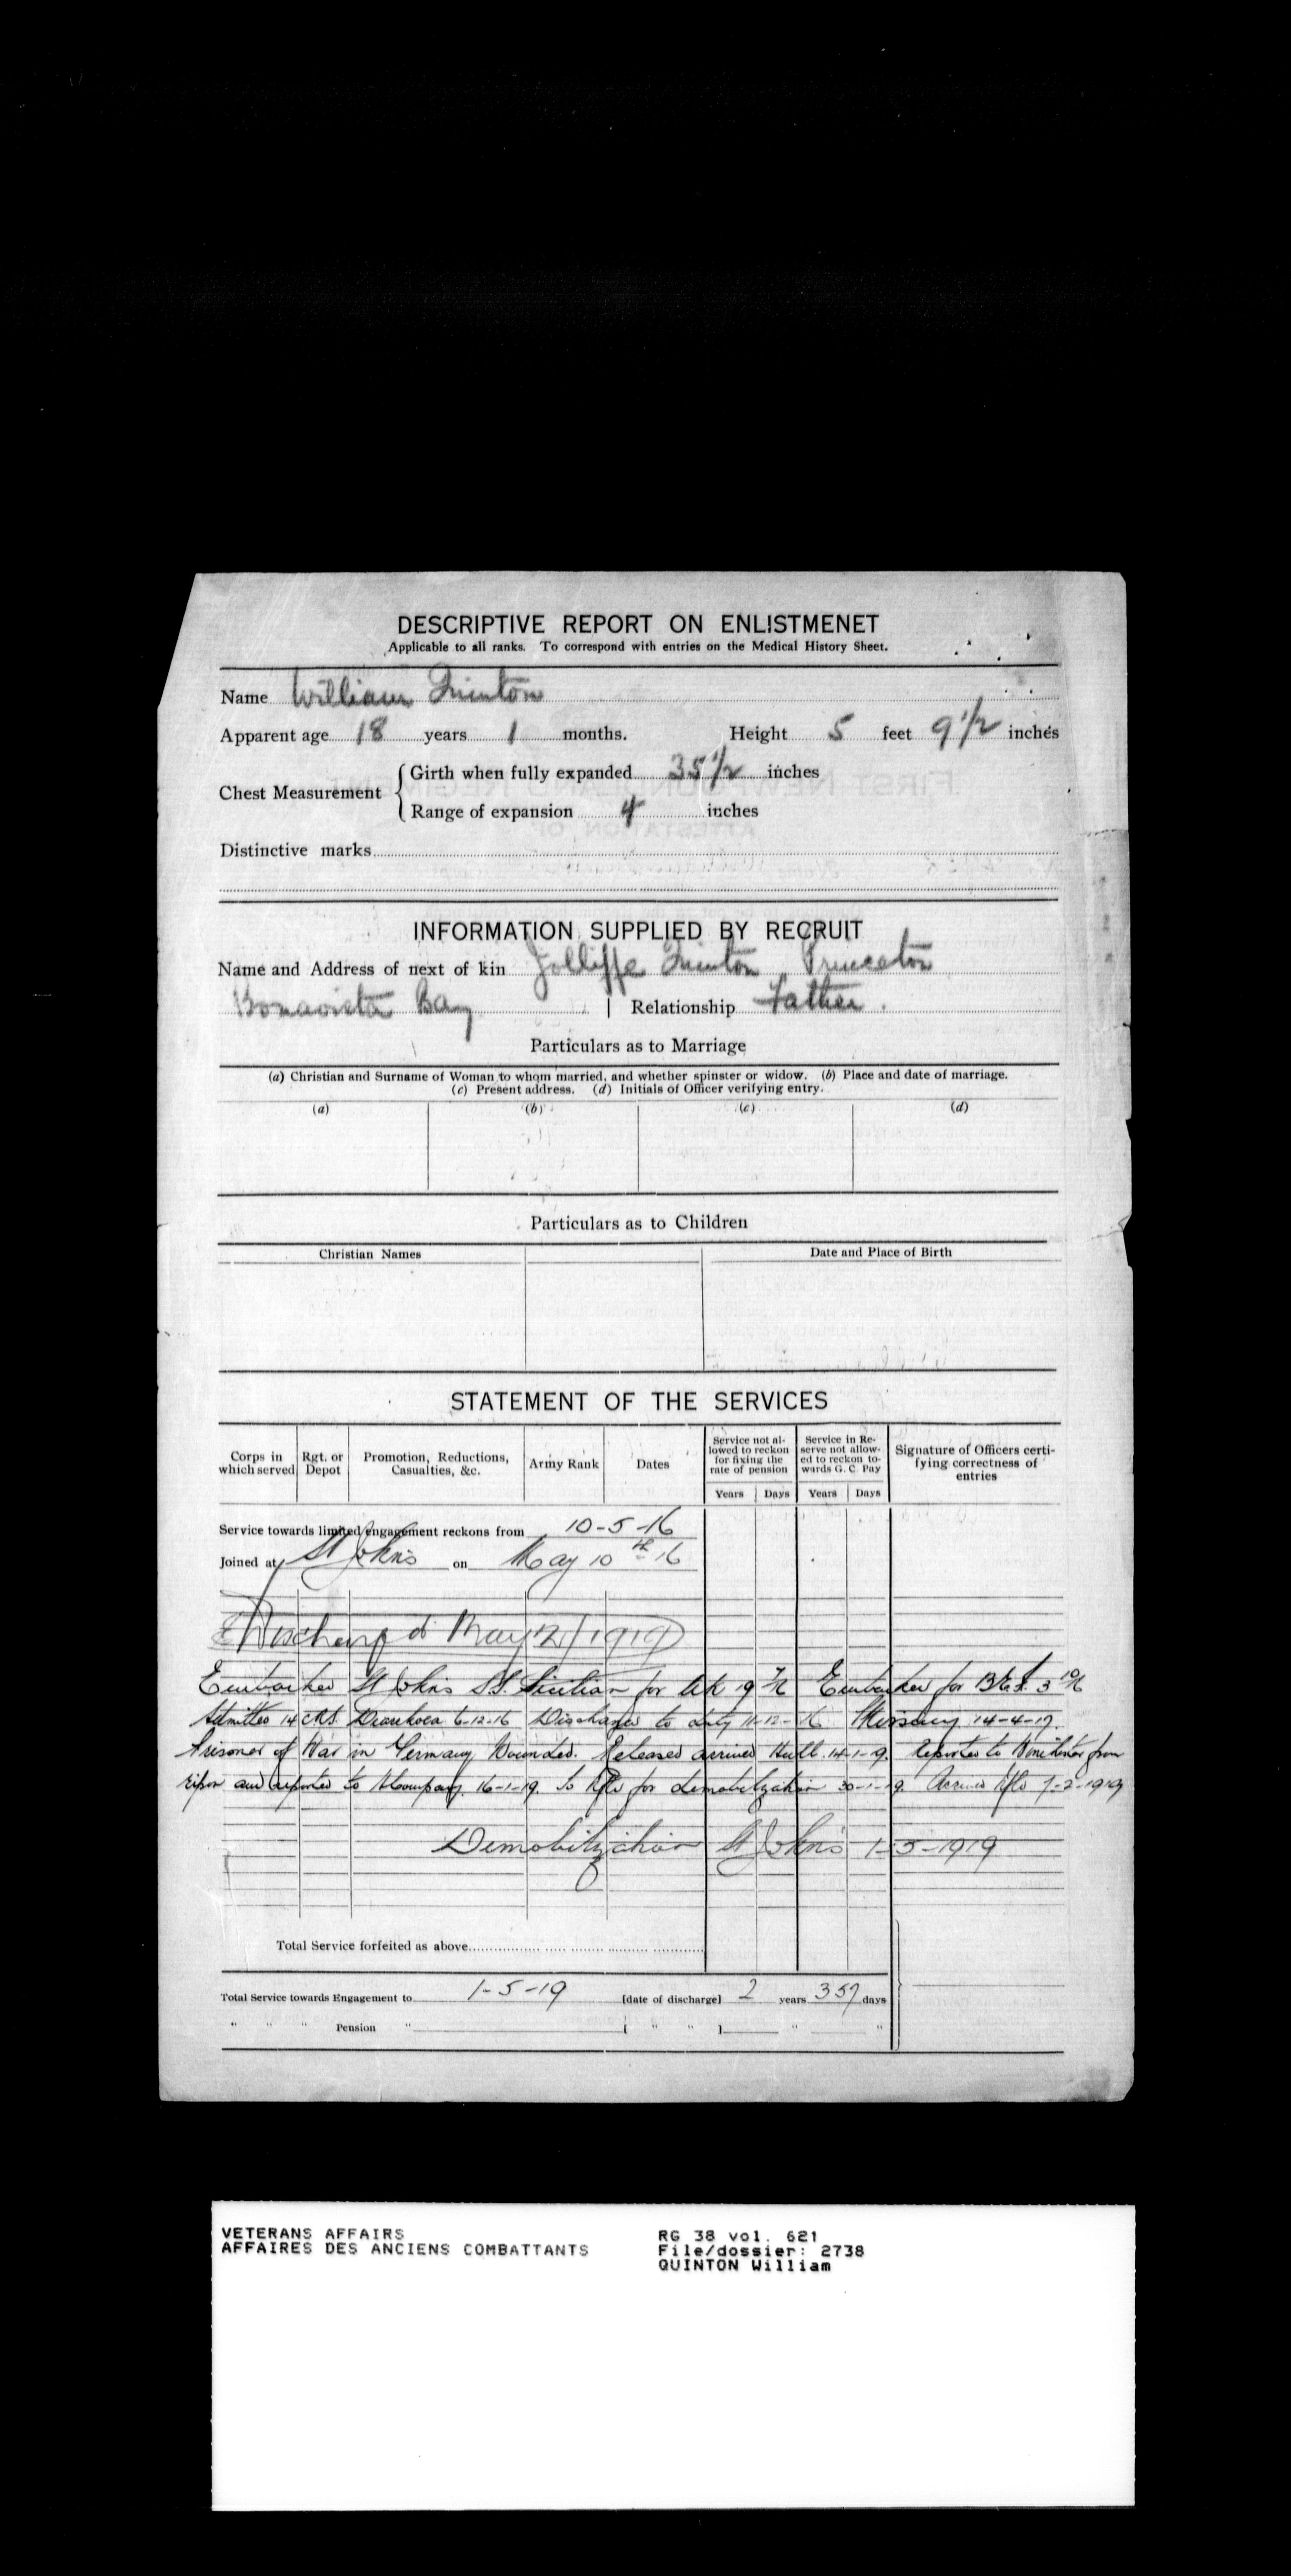 DESCRIPTIVE REPORT ON ENLISTMENET
Applicable to all ranks. To correspond with entries on the Medical History Sheet.
Name William Quinton
Apparent age 18 years 1 months. Height 5 feet 9 1/2 inches
Chest Measurement
Girth when fully expanded 35 1/2 inches
Range of expansion 4 inches
Distinctive marks
INFORMATION SUPPLIED BY RECRUIT
Name and Address of next of kin Jolliffe Quinton Princeton
Bonavista Bay | Relationship Father.
Particulars as to Marriage
(a) Christian and Surname of Woman to whom married, and whether spinster or widow. (b) Place and date of marriage.
(c) Present address. (d) Initials of Officer verifying entry.
(a) (b) (c) (d)
Particulars as to Children
Christian Names Date and Place of Birth
STATEMENT OF THE SERVICES
Corps in which served Rgt. or Depot Promotion, Reductions, Casualties, &c. Army Rank Dates Service not allowed to reckon for fixing the rate of pension Service in Reserve not allowed to reckon towards G. C. Pay Signature of Officers certifying correctness of entries
Years Days Years Days
Service towards limited engagement reckons from 10-5-16
Joined at St Johns on May 10th -16
Discharged May 1919
Embarked St Johns S.S. Sicilian for UK 19 7/16 Embarked for B.E.F. 3 10/16
Admitted 14 Diarrhoea 6-12-16 Discharged to duty 11-12-16 Missing 14-4-17.
Prisoner of War in Germany Wounded. Released arrived Hull 14-1-19. Reported to Winchester from
Ripon and reported to H Company 16-1-19. To Nfld for demobilization 30-1-19. Arrived Nfld 7-2-1919
Demobilization St Johns 1-5-1919
Total Service forfeited as above
Total Service towards Engagement to 1-5-19 [date of discharge] 2 years 357 days
" " " Pension " [ " " ] " "
VETERANS AFFAIRS
AFFAIRES DES ANCIENS COMBATTANTS
RG 38 vol. 621
File/dossier: 2738
QUINTON William